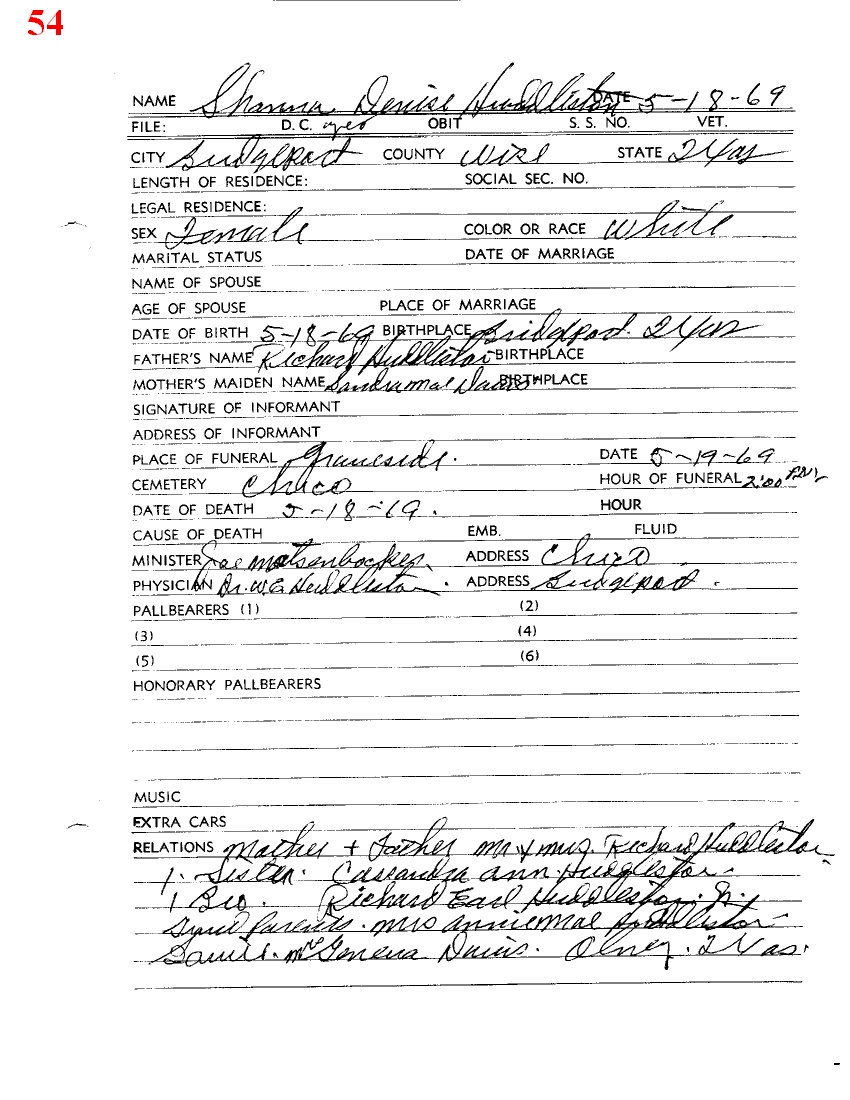 54
NAME Shanna Denise Huddleston DATE 5-18-69
FILE: D.C. yes OBIT S. S. NO. VET.
CITY Bridgeport COUNTY Wise STATE Texas
LENGTH OF RESIDENCE: SOCIAL SEC. NO.
LEGAL RESIDENCE:
SEX Female COLOR OR RACE White
MARITAL STATUS DATE OF MARRIAGE
NAME OF SPOUSE
AGE OF SPOUSE PLACE OF MARRIAGE
DATE OF BIRTH 5-18-69 BIRTHPLACE Bridgeport. Texas
FATHER'S NAME Richard Huddleston BIRTHPLACE
MOTHER'S MAIDEN NAME Sandra Mae Davis BIRTHPLACE
SIGNATURE OF INFORMANT
ADDRESS OF INFORMANT
PLACE OF FUNERAL Graveside. DATE 5-19-69
CEMETERY Chico HOUR OF FUNERAL 2:00 P.M.
DATE OF DEATH 5-18-69. HOUR
CAUSE OF DEATH EMB. FLUID
MINISTER Joe Matsenbocker. ADDRESS Chico
PHYSICIAN Dr. W.E. Huddleston. ADDRESS Bridgeport.
PALLBEARERS (1) (2)
(3) (4)
(5) (6)
HONORARY PALLBEARERS
MUSIC
EXTRA CARS
RELATIONS Mother + Father Mr & Mrs. Richard Huddleston
1. Sister. Cassandra Ann Huddleston
1 Bro. Richard Earl Huddleston. Jr.
Parents. Mrs Annie Mae Huddleston
Mrs Geneva Davis. Olney. Texas.